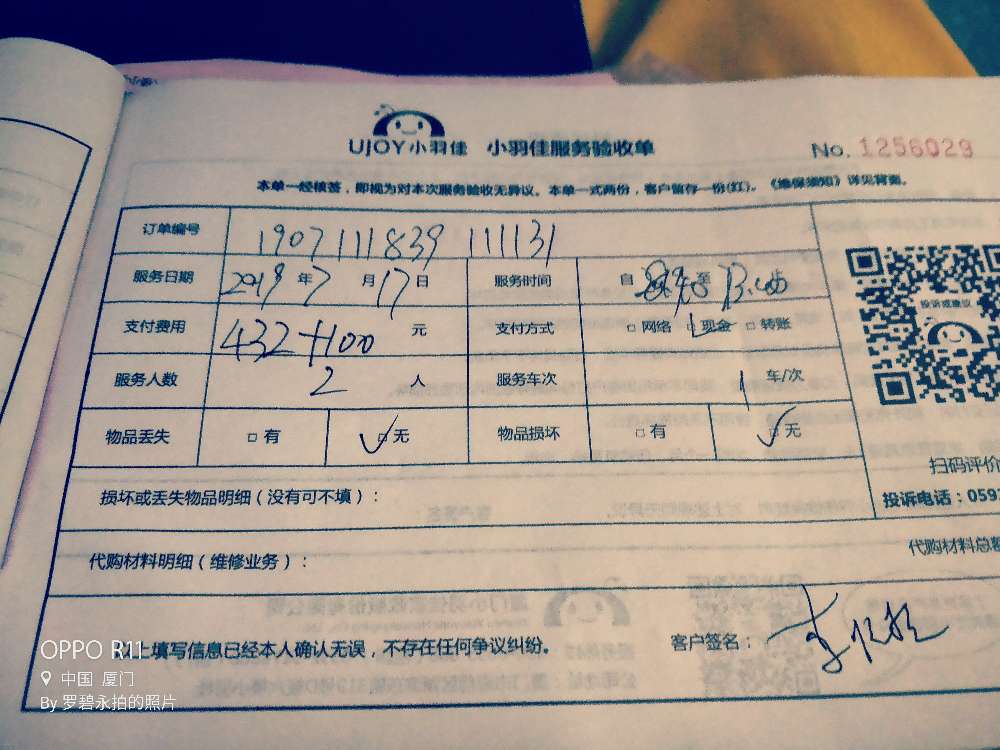 UJOY小羽佳 小羽佳服务验收单 No. 1256029
本单一经核签，即视为对本次服务验收无异议。本单一式两份，客户留存一份(红)。《维保须知》详见背面。
订单编号 1907111839 111131
服务日期 2019 年 7 月 17 日 服务时间 自 至
支付费用 432+100 元 支付方式 □ 网络 □ 现金 □ 转账
投诉或建议
服务人数 2 人 服务车次 1 车/次
物品丢失 □ 有 □ 无 物品损坏 □ 有 □ 无
扫码评价
损坏或丢失物品明细（没有可不填）：
投诉电话：059
代购材料明细（维修业务）：
代购材料总额
以上填写信息已经本人确认无误，不存在任何争议纠纷。 客户签名：
OPPO R11
中国 厦门
By 罗碧永拍的照片